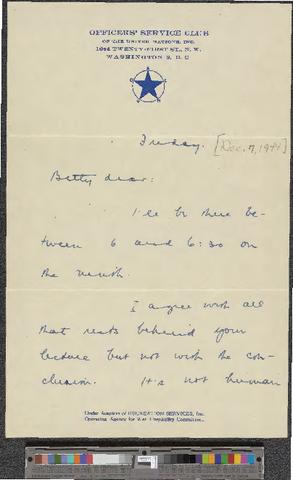 OFFICERS' SERVICE CLUB
OF THE UNITED NATIONS, INC.
1644 TWENTY-FIRST ST., N. W.
WASHINGTON 9, D. C.
[Dec. 7, 1944]
Betty dear:
I'll be there be-
tween 6 and 6:30 on
the
I agree with all
that rests behind your
lecture but not with the con-
clusion. It's not human
Under Auspices of RECREATION SERVICES, Inc.
Operating Agency for War Hospitality Committee.